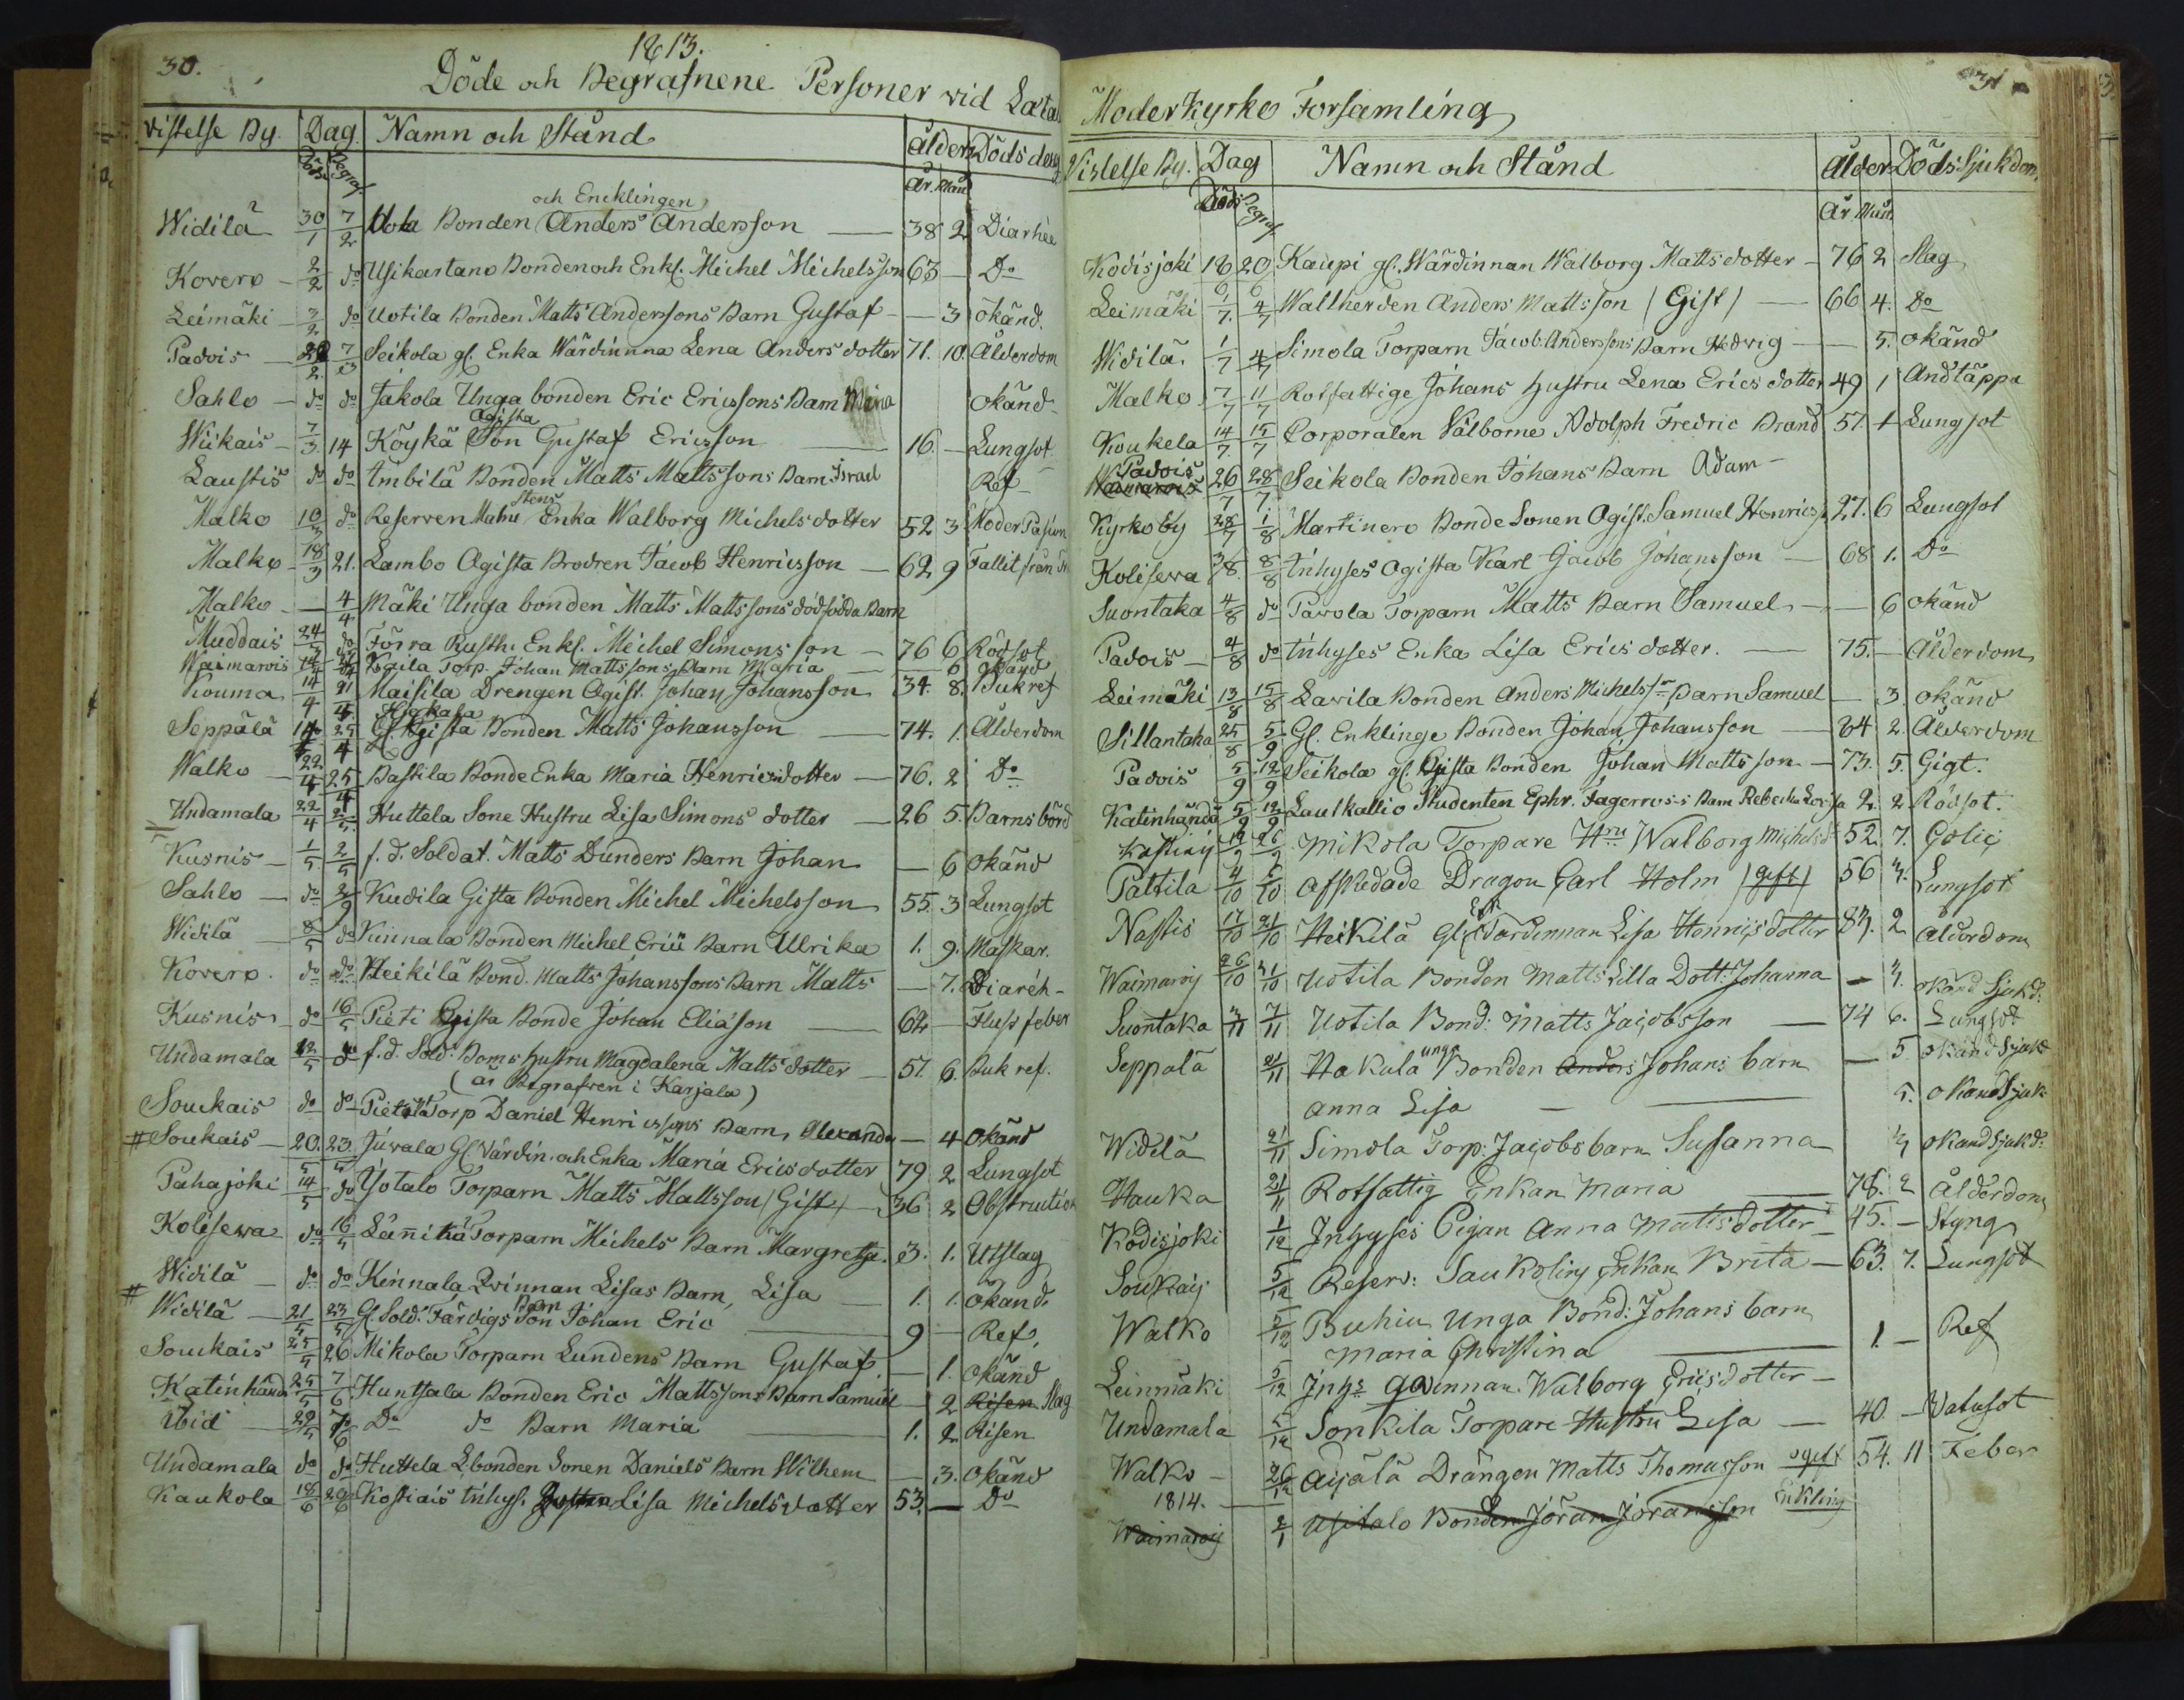 30.
1813.
Döde och Begrafnene Personer vid Lata
Vistelse By. Dag Namn och Stånd Ålder Döds
Döds Begraf År. Mån
och Encklingen
Widilä 30/1 7/2 Uola Bonden Anders Andersson — 38 2 Diarhée
Kovero 2/2 do Usikartano Bonden och Enkl. Michel Michelsson 63 — Do
Leimäki 3/2 do Uotila Bonden Matts Anderssons Barn Gustaf — 3 okänd.
Padois 7/3 Seikola gl. Enka Wärdinna Lena Andersdotter 71. 10. Ålderdom
Sahlo — do do Jakola Unga bonden Eric Ericssons Barn okänd
Ogifta
Wiikais 7/3 14 Köykä Son Gustaf Ericsson — 16. — Lungsot
Laustis do do Imbilä Bonden Matts Mattssons Barn Israel Ref
Malko 10/3 do Reserven Enka Walborg Michelsdotter 52 3 Moder Pasion
Malko 18/3 21. Lambo Ogifta Brodren Jacob Henricsson — 62 9 Fallit från
Malko — 4/4 Mäki Unga bonden Matts Mattssons dödfödda Barn
Muddais 24/3 do Förra Rusth. Enkl. Michel Simonsson — 76 6 Rödsot
Waimarois Torp. Johan Mattssons Barn Maria — 6 okänd
Kouma 14/4 21/4 Maisila Drengen Ogift. Johan Johansson 34. 8. Bukref
Hakala
Seppälä 14/4 25/4 Gl. Gifta Bonden Matts Johansson — 74. 1. Ålderdom
Walko — 22/4 25/4 Pastila Bonde Enka Maria Henricsdotter — 76. 2 Do
Undamala 22/4 2/5 Huttela Sone Hustru Lisa Simons dotter — 26 5. Barnsbörd
Kusnis — 1/5 2/5 f. d. Soldat. Matts Dunders Barn Johan — 6 okänd
Sahlo — do 2/5 Kudila Gifta Bonden Michel Michelsson 55. 3 Lungsot
Widilä 8/5 do Kinnala Bonden Michel Barn Ulrika 1. 9. Maskar.
Kovero. do do Heikilä Bond. Matts Johanssons Barn Matts — 7. Diaréh-
Kusnis do 16/5 Pieti Gifta Bonde Johan Eliason — 62 — Fluss feber
Undamala 12/5 do f. d. Sold: Boms hustru Magdalena Mattsdotter — 51. 6. Buk ref.
(är Begrafven i Karjala)
Souckais do do Pietola Torp Daniel Henricssons Barn, Alexander — 4 okänd
# Soukais — 20/5 23/5 Juvala Gl Värdin. och Enka Maria Ericsdotter 79 2 Lungsot
Pahajoki 14/5 do Yotalo Torparn Matts Mattsson (Gift) — 36 2 Obstruction
Kolisewa do 16/5 Lännikä Torparn Michels Barn Margreta. 3. 1. Utslag
Widilä — do do Kinnala Qvinnan Lisas Barn, Lisa — 1. 1. okänd.
Barn
# Widilä — 21/5 23/5 Gl. Sold. Färdigs Son Johan Eric — 9 — Ref,
Souckais 25/5 26 Mikola Torparn Lundens Barn Gustaf. — 1. okänd
Katinhända 25/5 7/6 Huntsala Bonden Eric Mattssons Barn Samuel — 2 Risen Slag
Ibid — 29/5 7/6 Do do Barn Maria — 1. 2 Risen
Undamala do do Huttela bonden Sonen Daniels Barn Wilhem — 3. okänd
Kaukola 18/6 20/6 Kostiais Inhys. Lisa Michelsdotter 53. — Do
31
Moderkyrko Församling
Vistelse By. Dag Namn och Stånd Ålder Döds Sjukdom.
Döds Begraf År Mån.
Kodisjoki 18/6 20/6 Kaupi gl. Wärdinnan Walborg Mattsdotter — 76 2 Slag
Leimäki 1/7. 4/7 Wallherden Anders Mattsson (Gift) — 66 4. Do
Widilä. 1/7 4/7 Simola Torparn Jacob Anderssons Barn Hedvig — 5. okänd
Malko 7/7 11/7 Rotfattige Johans hustru Lena Ericsdotter 49 1 Andtäppa
Koukela 14/7 15/7 Corporalen Välborne Adolph Fredric Brand 51. 1 Lungsot
Padois
Waimarois 26/7 28/7 Seikola Bonden Johans Barn Adam —
Kyrkoby 28/7 1/8 Martinero Bonde Sonen Ogift. Samuel Henrics. 27. 6 Lungsot
Kolisewa 3/8. 8/8 Inhyses Ogifta Karl Jacob Johansson — 68 1. Do
Suontaka 4/8 do Pavola Torparn Matts Barn Samuel — 6 okänd
Padois — 4/8 do Inhyses Enka Lisa Ericsdotter. — 75. — Ålderdom
Leimäki 13/8 15/8 Lavila Bonden Anders Michelss. Barn Samuel — 3. okänd
Sillantaka 25/8 5/9 Gl. Enklinge Bonden Johan Johansson — 84 2. Ålderdom
Padois 5/9 12/9 Seikola gl. Gifta Bonden Johan Mattsson — 73. 5. Gigt.
Katinhändä 5/9 12/9 Laulkallio Studenten Ephr. Barn Rebecka 2. 2 Rödsot.
Kastiaij 19/9 26/9 Mikola Torpare Hru Walborg Michelsd 52. 7. Colic
Palttila 4/10 /10 Afskedade Dragon Carl Holm (gift) 56 4. Lungsot
Enk
Nastis 17/10 21/10 Heikilä Gl. Värdinnan Lisa Henricsdotter 83. 2 Ålderdom
Waimaroij 26/10 /10 Uotila Bonden Matts Lilla Dott: Johanna — okänd Sjukd:
Suontaka 3/11 7/11 Uotila Bond: Matts Jacobsson — 74 6. Lungsot
Seppälä 21/11 Hakula unga Bonden Anders Johans barn — 5. okänd Sjuk
Anna Lisa — 5. okänd Sjuk
Widila 21/11 Simola Torp: Jacobs barn Susanna okänd Sjukd:
Hauka 21/11 Rotfattig Enkan Maria — 78. 2 Ålderdom
Kodisjoki 1/12 Inhyses Pigan Anna Mattsdotter — 45. — Styng
Soukaij 5/12 Reserv: Saukoling Enkan Brita — 63. 7. Lungsot
Walko 5/12 Buhiu Unga Bond: Johans barn
Maria Christina — 1. — Ref
Leinmäki 5/12 Inhs qvinnan Walborg Ericsdotter —
Undamala 5/12 Sonkila Torpare Hustru Lisa — 40 — Vatusot
Walko — 26/12 Aijälä Drängen Matts Thomasson ogift 54. 11 Feber
1814.
Waimaroij 2/1 Usitalo Bonden Jöran Jöransson Enkling